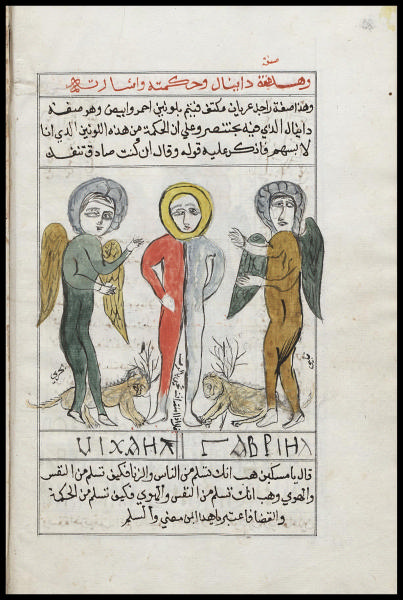 صفة
وهذه صفة دانيال وحكمته واشارته
وهذا صفة راجل عريان مكتف بلونين احمر وابيض وهو صفة
دانيال الذي بختنصر وعلى ان الحكمة من هذه اللونين الذي انا
لابسهم فانكر عليه قوله وقال ان كنت صادق تنفد
ΜΙΧΑΗΛ ΓΑΒΡΙΗΛ
قال يا مسكين هب انك تسلم من الناس والزنا فكيف تسلم من النفس
والهوى وهب انك تسلم من النفس والهوى فكيف تسلم من الحكمة
والقضا فاعتبر يا هذا بمن مضى والسلم